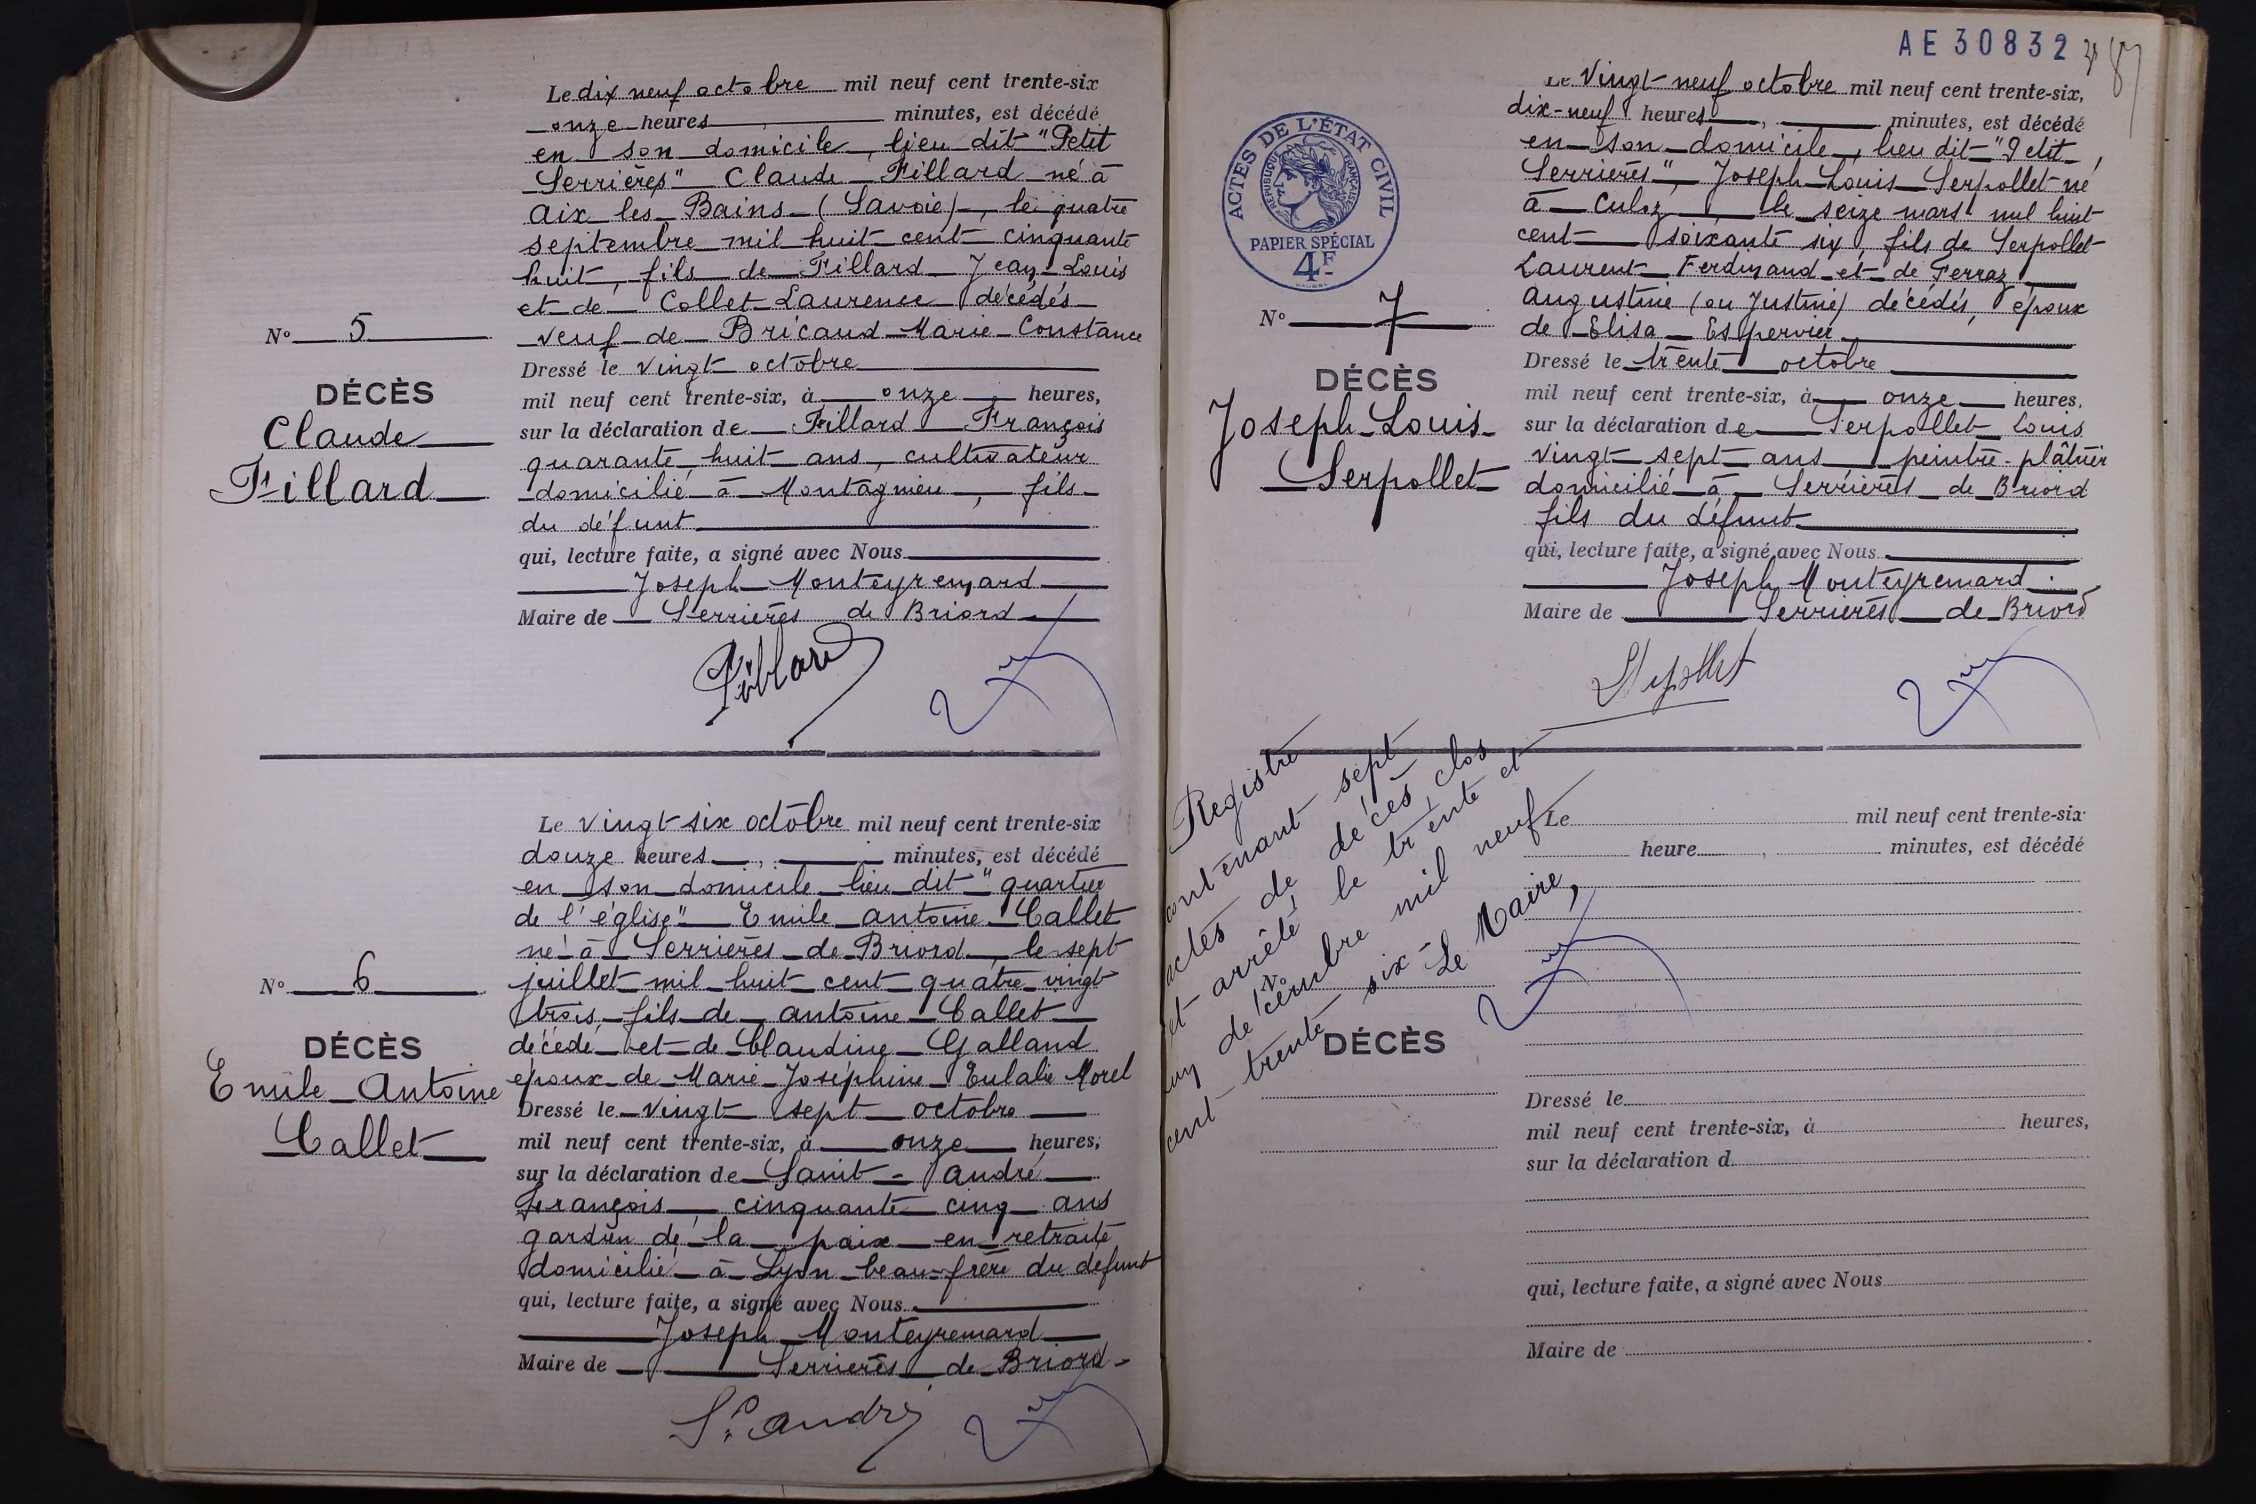 Le dix neuf octobre mil neuf cent trente-six
onze heures minutes, est décédé
en son domicile, lieu dit "Petit
Serrières" Claude Fillard né à
Aix les Bains (Savoie), le quatre
septembre mil huit cent cinquante
huit, fils de Fillard Jean Louis
et de Collet Laurence décédés
veuf de Bricaud Marie Constance
Nº 5
DÉCÈS
Claude
Fillard
Dressé le vingt octobre
mil neuf cent trente-six, à onze heures,
sur la déclaration de Fillard François
quarante huit ans, cultivateur
domicilié à Montagnieu, fils
du défunt
qui, lecture faite, a signé avec Nous
Joseph Monteyremard
Maire de Serrières de Briord
Fillard
Le vingt-six octobre mil neuf cent trente-six
douze heures, minutes, est décédé
en son domicile lieu dit "quartier
de l'église" Emile Antoine Callet
né à Serrières de Briord, le sept
juillet mil huit cent quatre vingt
trois, fils de Antoine Callet
décédé et de Claudine Galland
époux de Marie Joséphine Eulalie Morel
Nº 6
DÉCÈS
Emile Antoine
Callet
Dressé le vingt sept octobre
mil neuf cent trente-six, à onze heures,
sur la déclaration de Saint-André
François, cinquante cinq ans
gardien de la paix en retraite
domicilié à Lyon beau-frère du défunt
qui, lecture faite, a signé avec Nous
Joseph Monteyremard
Maire de Serrières de Briord
St André
AE 30832
87
ACTES DE L'ÉTAT CIVIL
RÉPUBLIQUE FRANÇAISE
PAPIER SPÉCIAL
4F
Le vingt-neuf octobre mil neuf cent trente-six,
dix-neuf heures, minutes, est décédé
en son domicile, lieu dit "Petit
Serrières", Joseph Louis Serpollet né
à Culoz, le seize mars mil huit
cent soixante six, fils de Serpollet
Laurent Ferdinand et de Ferraz
Augustine (ou Justine) décédés, époux
de Elisa Espervier
Nº 7
DÉCÈS
Joseph-Louis
Serpollet
Dressé le trente octobre
mil neuf cent trente-six, à onze heures,
sur la déclaration de Serpollet Louis
vingt sept ans peintre-plâtrier
domicilié à Serrières de Briord
fils du défunt
qui, lecture faite, a signé avec Nous
Joseph Monteyremard
Maire de Serrières de Briord
Serpollet
Registre
contenant sept
actes de décès, clos
et arrêté le trente et
un décembre mil neuf
cent trente six Le Maire,
Le mil neuf cent trente-six
heure, minutes, est décédé
Nº
DÉCÈS
Dressé le
mil neuf cent trente-six, à heures,
sur la déclaration d
qui, lecture faite, a signé avec Nous
Maire de